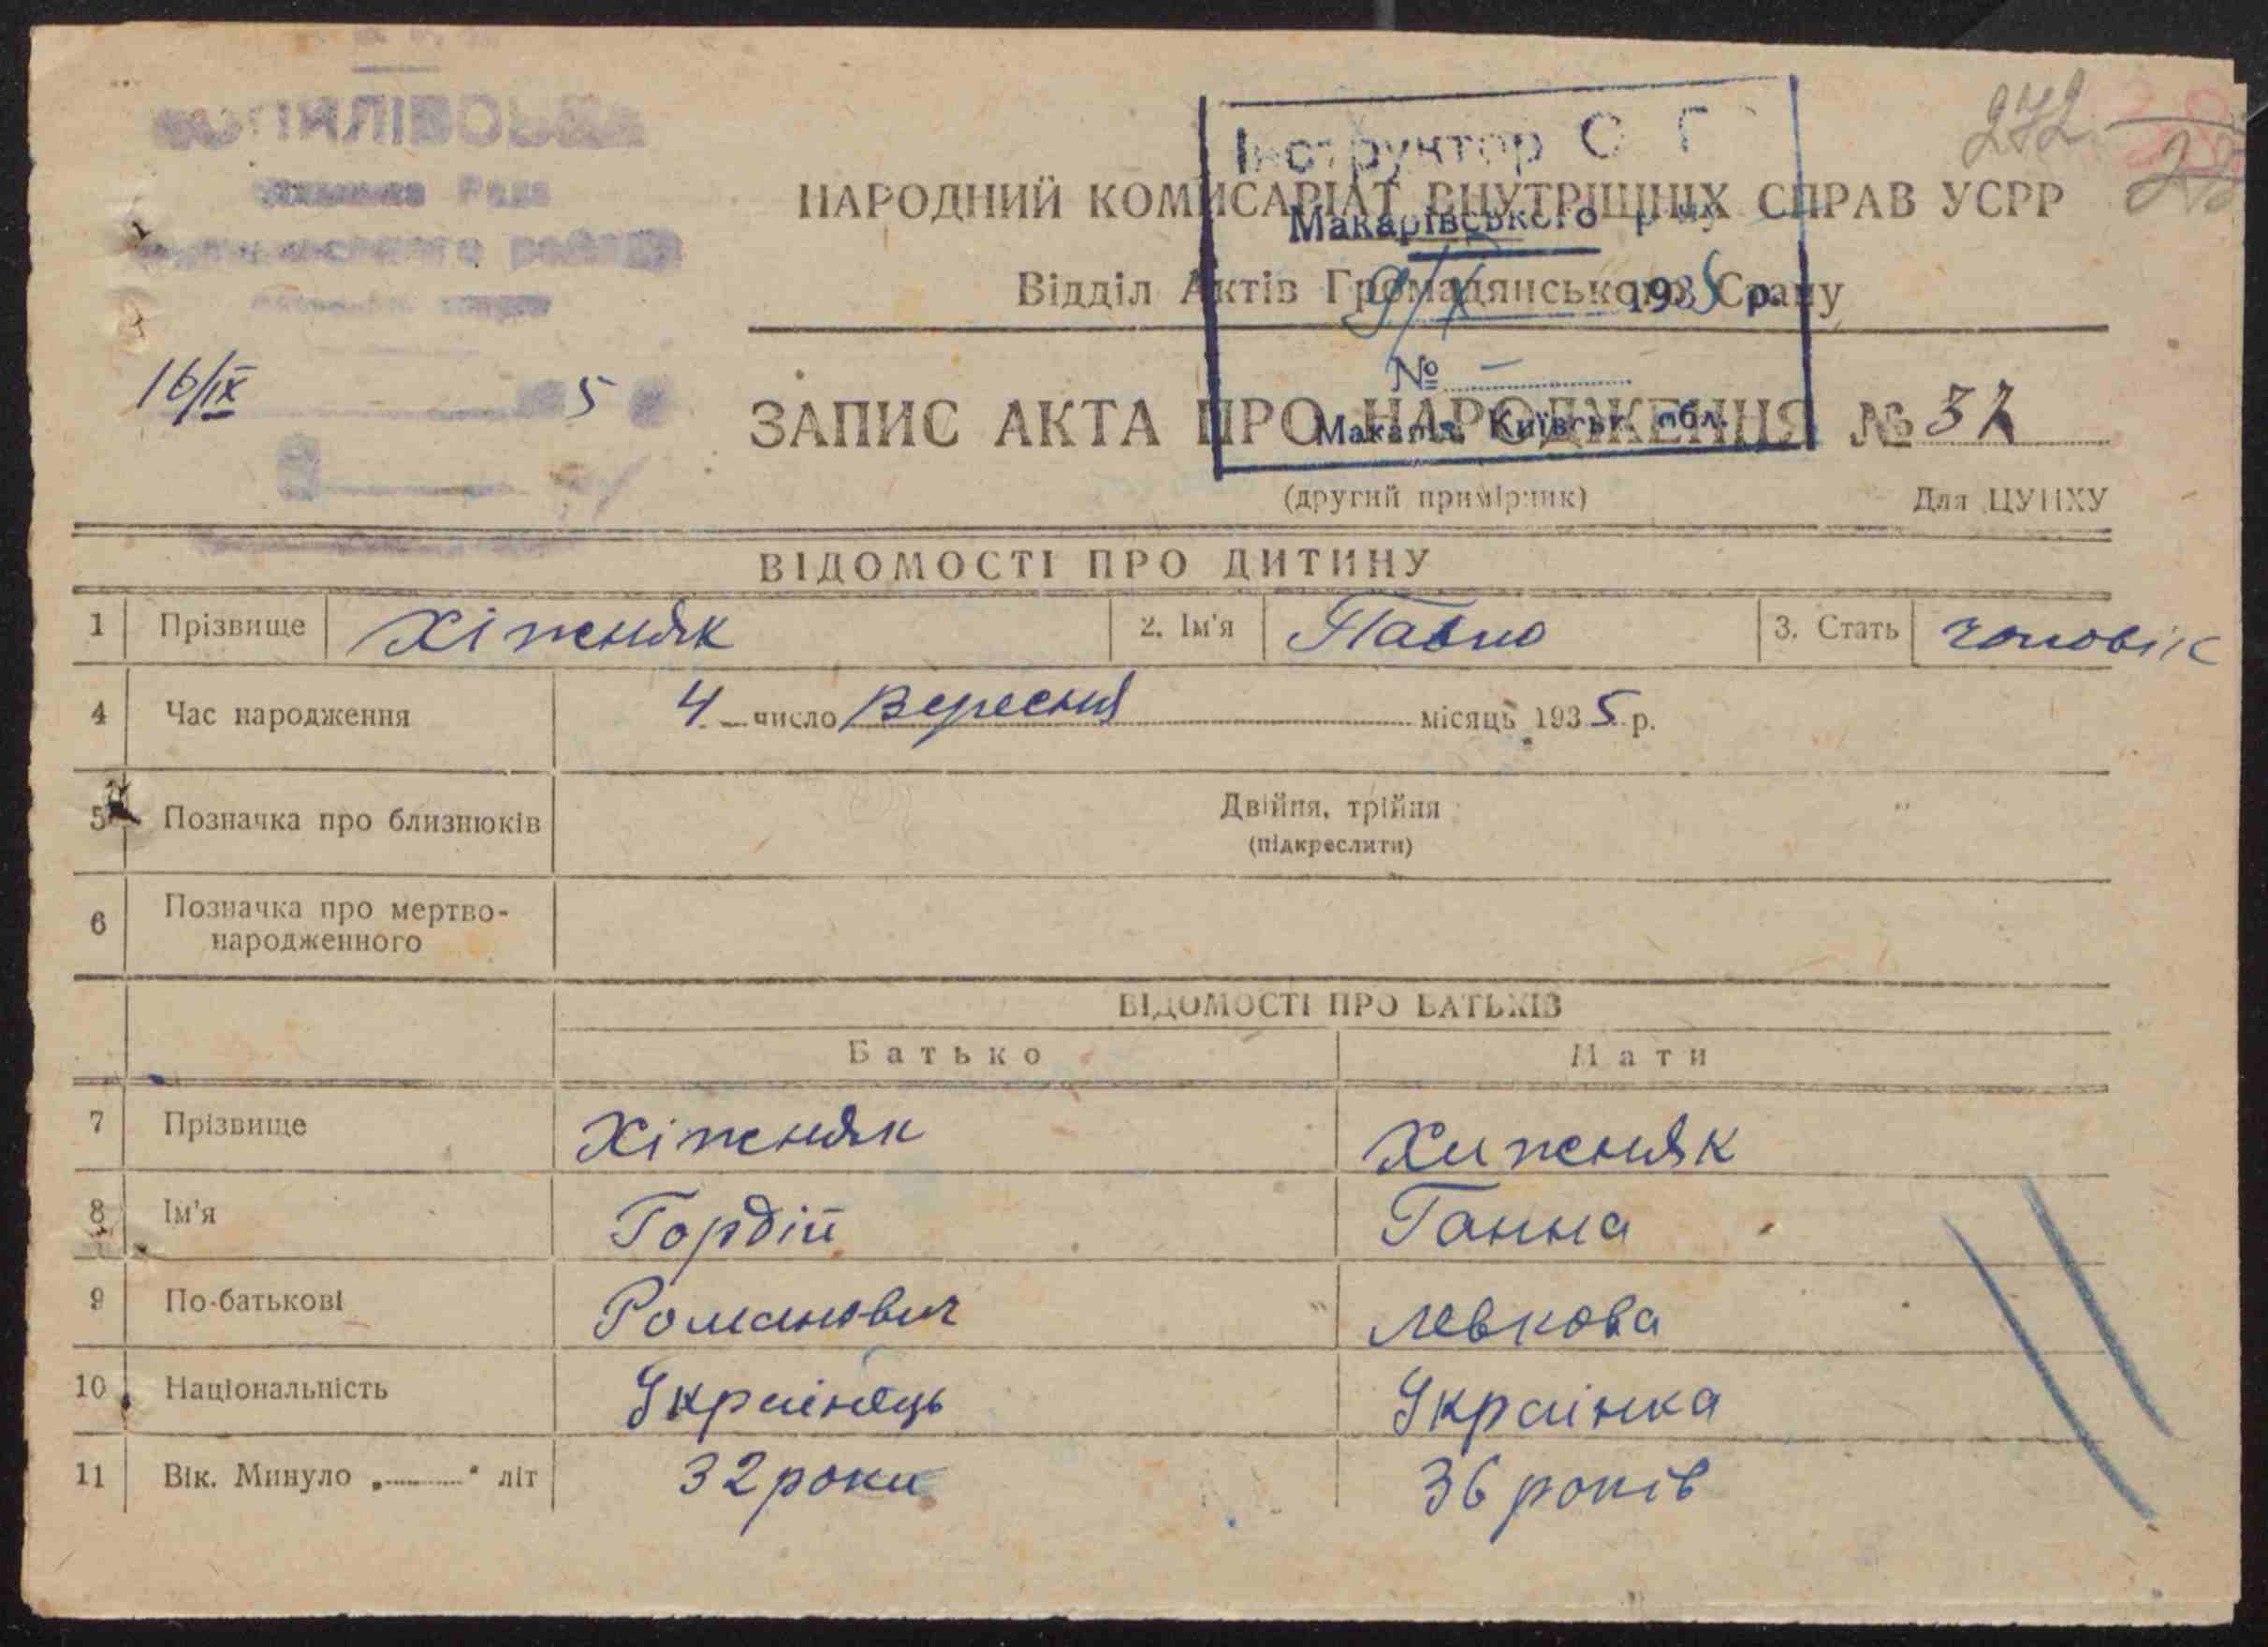 272
Інструктор О Г
НАРОДНИЙ КОМИСАРІАТ ВНУТРІШНІХ СПРАВ УСРР
Макарівського р-ну
Відділ Актів Громадянського Стану
9/X 1935 р.
16/IX 5
№ —
ЗАПИС АКТА ПРО НАРОДЖЕННЯ №
Макарів, Київськ. обл.
(другий примірник) Для ЦУНХУ
ВІДОМОСТІ ПРО ДИТИНУ
1 Прізвище Хіжняк 2. Ім'я Павло 3. Стать чоловік
4 Час народження 4 число Вересня місяць 1935 р.
5 Позначка про близнюків Двійня, трійня
(підкреслити)
6 Позначка про мертво-
народженного
ВІДОМОСТІ ПРО БАТЬКІВ
Батько Мати
7 Прізвище Хіжняк Хижняк
8 Ім'я Гордій Ганна
9 По-батькові Романович Левкова
10 Національність Українець Українка
11 Вік. Минуло „.........“ літ 32 роки 36 років